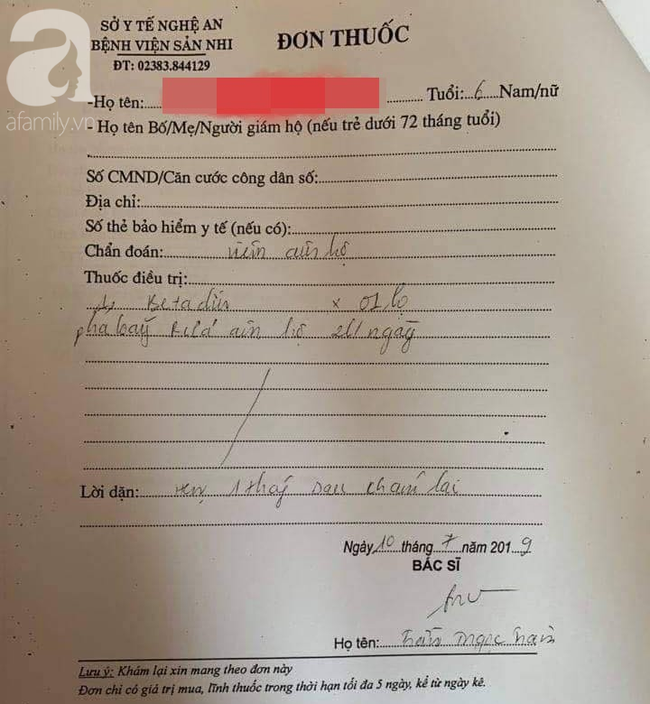 SỞ Y TẾ NGHỆ AN
BỆNH VIỆN SẢN NHI
ĐT: 02383.844129
ĐƠN THUỐC
a
afamily.vn
-Họ tên: Tuổi: 6 Nam/nữ
- Họ tên Bố/Mẹ/Người giám hộ (nếu trẻ dưới 72 tháng tuổi)
Số CMND/Căn cước công dân số:
Địa chỉ:
Số thẻ bảo hiểm y tế (nếu có):
Chẩn đoán: viêm âm hộ
Thuốc điều trị:
Betadin x 01 lọ
pha loãng rửa âm hộ 2l/ngày
Lời dặn: hẹn 1 tháng sau khám lại
Ngày 10 tháng 7 năm 2019
BÁC SĨ
Họ tên: Trần Ngọc
Lưu ý: Khám lại xin mang theo đơn này
Đơn chỉ có giá trị mua, lĩnh thuốc trong thời hạn tối đa 5 ngày, kể từ ngày kê.